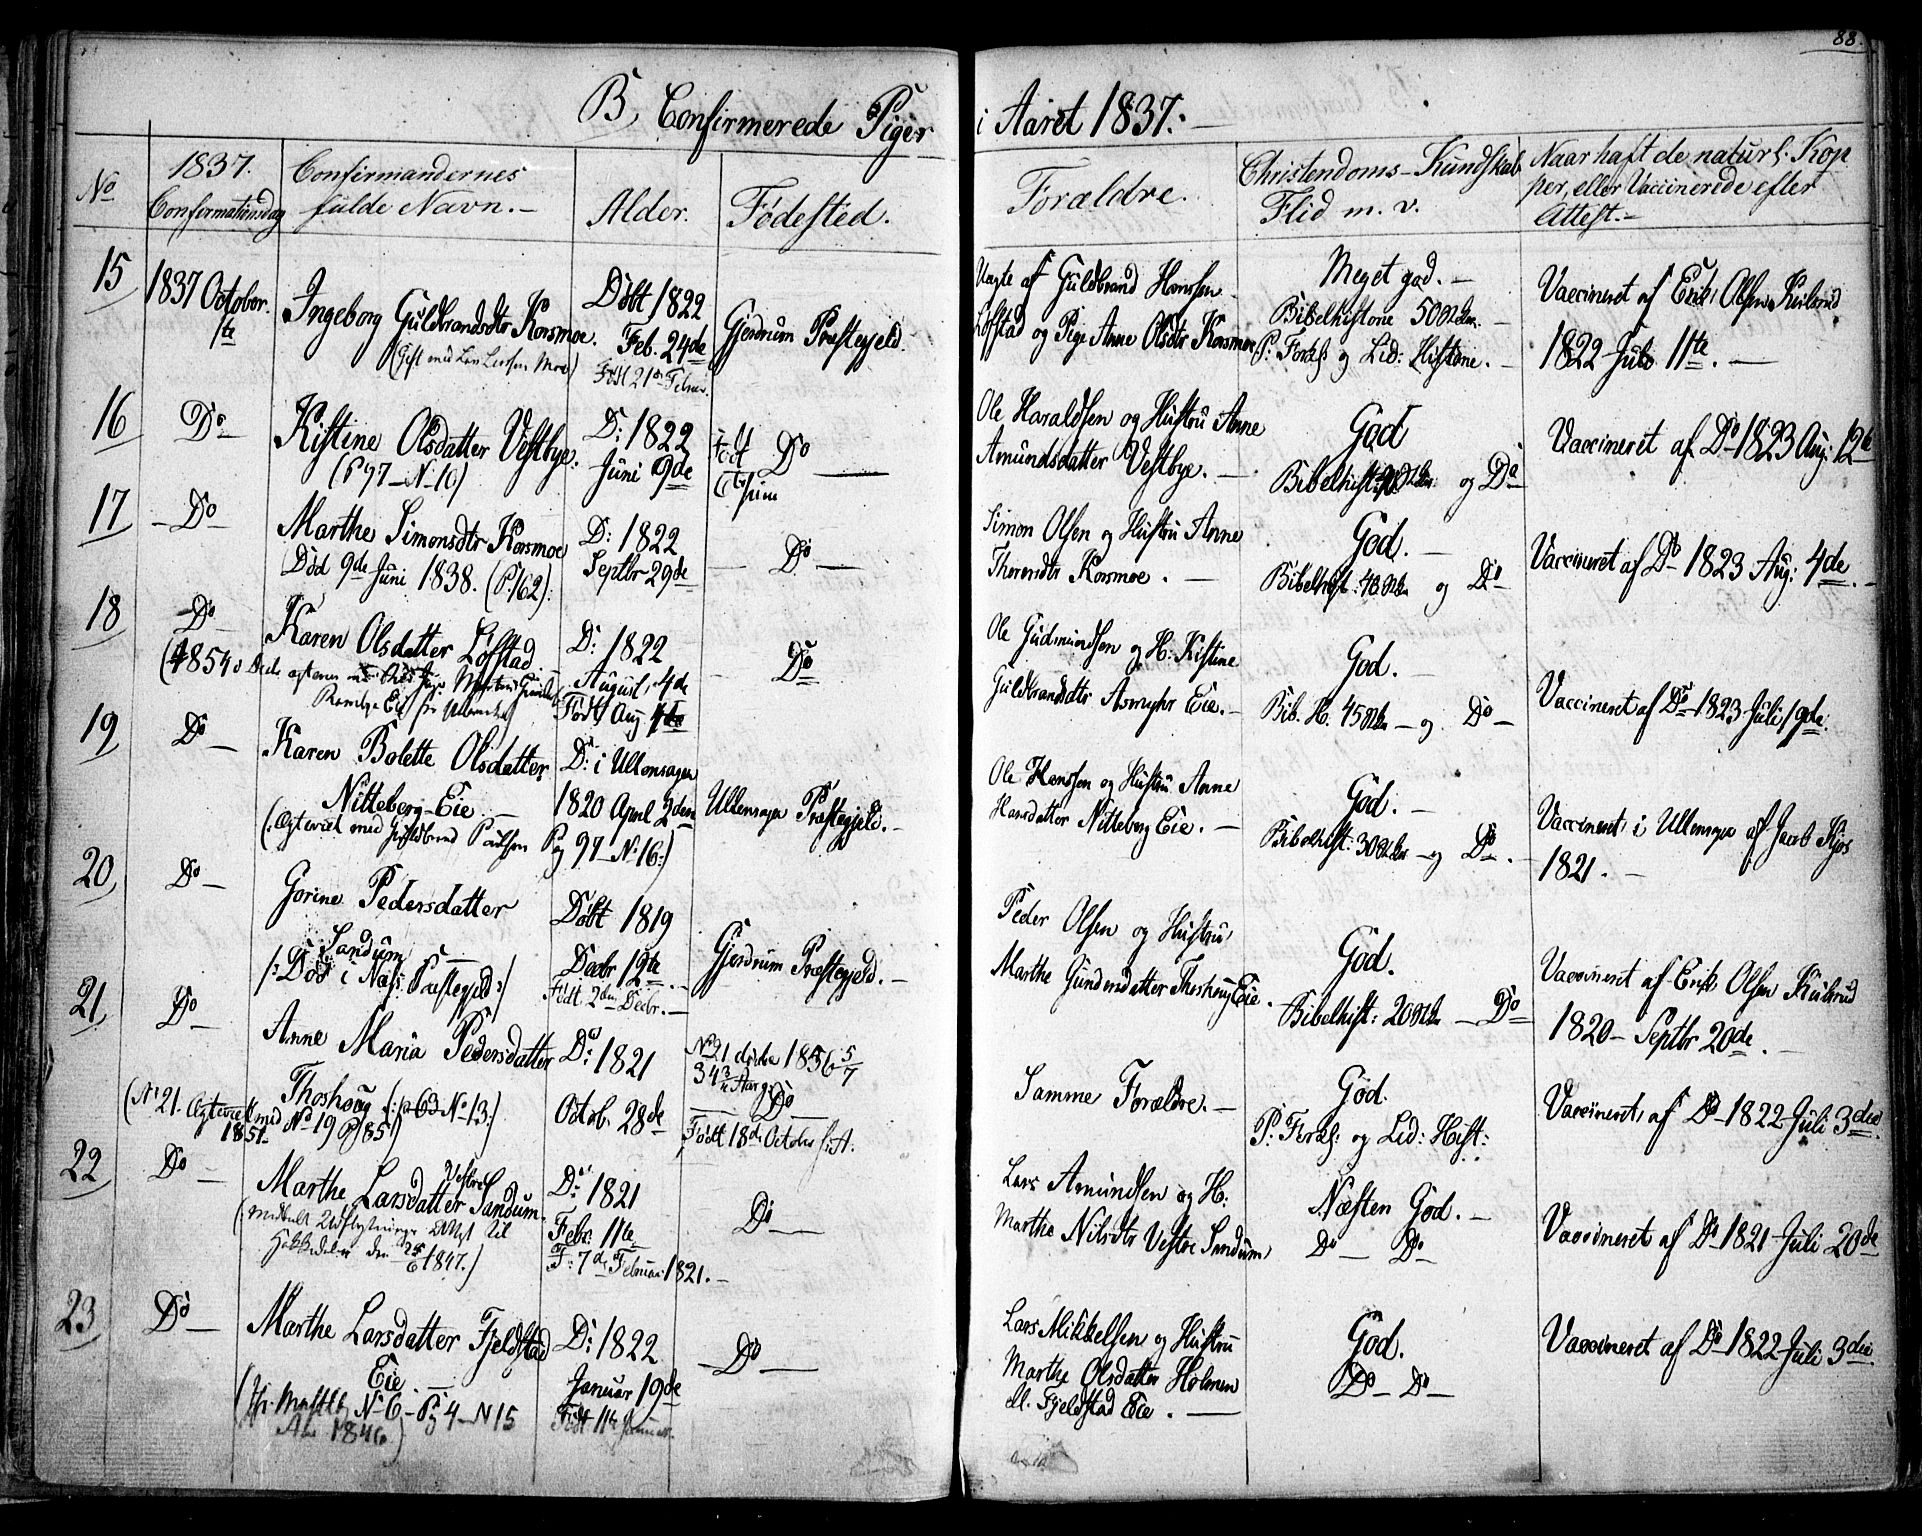 88.
B, Confirmerede Piger i Aaret 1837:-
No
1837. Confirmationsdag
Confirmandernes
fulde Navn.-
Alder.
Fødested.
Forældre.
Christendoms-Kundskab
Flid m. v.
Naar haft de naturl. Kop
per, eller Vaccinerede efter
Attest.-
15
1837 October
1ste
Ingeborg Guldbrandsdtr Korsmoe.
(Gift med Moe)
Døbt 1822
Feb. 24de
Født 21 Februar.
Gjerdrum Præstegjeld.
Uægte af Guldbrand Hanssen
Løfstad og Pige Anne Olsdtr Korsmoe
Meget god.-
Bibelhistorie
P: Foræs og Lid: Historie.-
Vaccineret af Erik Olsen Kulsrud
1822 Juli 11te.-
16
Do
Kistine Olsdatter Vestbye.
(P 97-N-10)
D: 1822
Juni 9de
Født
Do
Ole Haraldsen og Hustru Anne
Amundsdatter Vestbye.-
God
Bibelhist: og Do
Vaccineret af Do 1823 Aug: 12te
17
Do
Marthe Simonsdtr Korsmoe
Død 9de Juni 1838. (P. 162).
D: 1822
Septbr 29de
Do
Simon Olsen og Hustru Anne
Thorendtr Korsmoe.-
God.-
Bibelhist: og Do
Vaccineret af Do 1823 Aug: 4de.-
18
Do
Karen Olsdatter Løfstad
(1854
D: 1822
August 4de
Født Aug
Do
Ole Gudmundsen og H: Kistine
Guldbrandsdtr Asmyhr Eie.-
God.-
Bib. H. og Do
Vaccineret af Do 1823 Juli 19de.
19
Do
Karen Bolette Olsdatter
Nitteberg-Eie
(: Ægteviet med Guldbrand Paulsen Pag 97-No 16:)
D: i Ullensager
1820 April 2den
Ullensager Præstegjeld.-
Ole Hanssen og Hustru Anne
Hansdatter Nitteberg Eie.-
God.-
Bibelhist: og Do.
Vaccineret i Ullensager af Jacob Kjos
1821.-
20
Do
Gorine Pedersdatter
Sandum
/: Død i Næs Præstegjeld:/
Døbt 1819
Decbr 12te
Født 2den Decbr.-
Gjerdrum Præstegjeld.-
Peder Olsen og Hustru
Marthe Gundersdatter Thoshoug Eie.
God.
Bibelhist: Do
Vaccineret af Erik Olsen Kulsrud
1820-Septbr 20de.-
21
Do
Anne Maria Pedersdatter
Thoshoug (: p 63 No 13:)
(No 21. Ægteviet med No 19 P 85)
1851
Do: 1821
Octob. 28de
No 21 døde 1856 5/7
34 Aar
Do
Født 18de October
Samme Forældre.-
God.
P: Foræs: og Lid: Hist:
Vaccineret af Do 1822 Juli 3die.
22
Do
Marthe Larsdatter Vestre Sandum.
(: Meddelt Udflytnings Attest til
Hakkedalen den 25/6 1847.)
Do: 1821
Febr. 11te
F: 7de Februar 1821.-
Do
Lars Amundsen og H:
Marthe Nilsdtr Vestre Sandum
Næsten God.-
Do Do
Vaccineret af Do 1821 Juli 20de
23
Do
Marthe Larsdatter Fjeldstad
Eie.-
No 6-Pag 4-N 15
1846)
D: 1822
Januar 19de
Født 11te Januar
Do
Lars Mikkelsen og Hustru
Marthe Olsdatter Holmen
ell. Fjeldstad Eie.-
God.
Do Do
Vaccineret af Do 1822 Juli 3die.